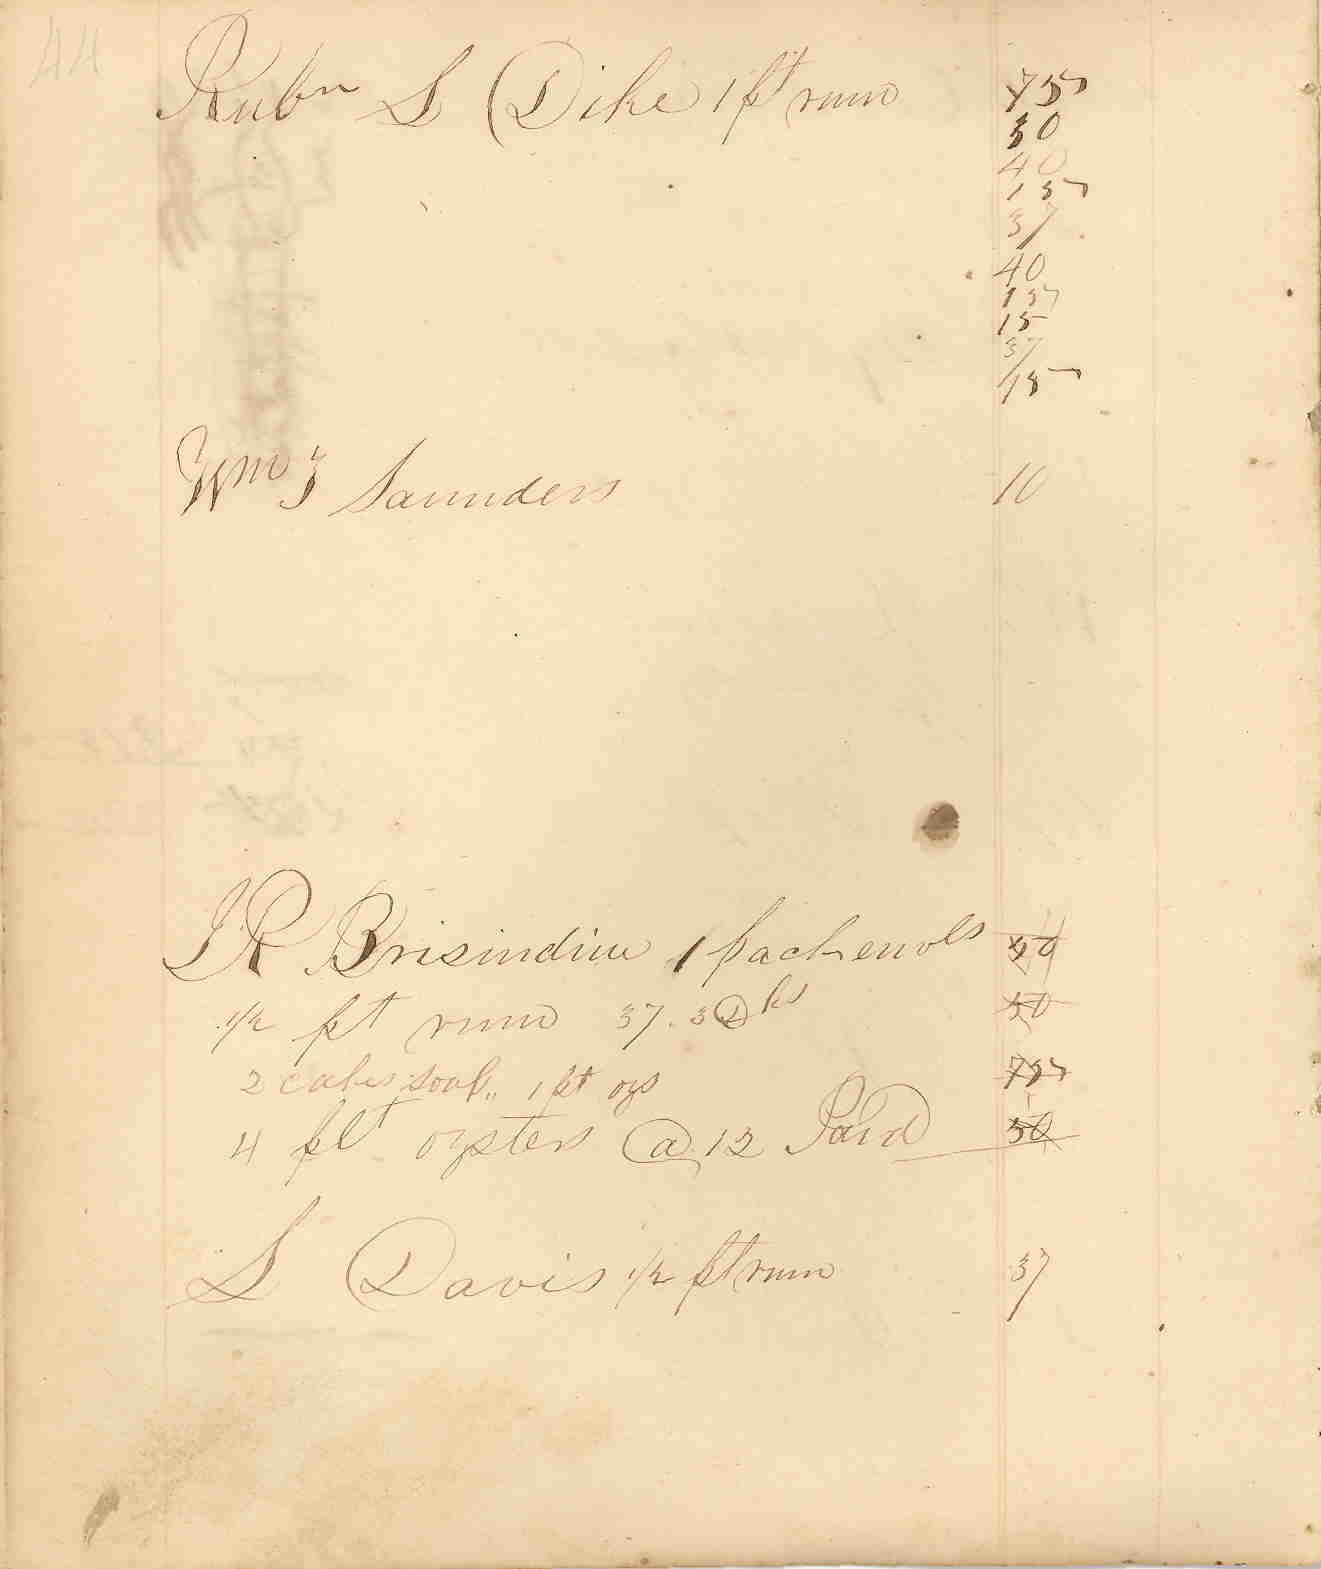 44
Rubn S Dike 1 pt rum 75
30
40
15
37
40
15
15
37
15
Wm T Saunders 10
J R Brisindine 1 pack envols 50
1/2 pt rum 37. 3 Dks 50
2 cakes soap,, 1 pt oys 75
4 plt oysters @ 12 Paid 50
S Davis 1/2 pt rum 37